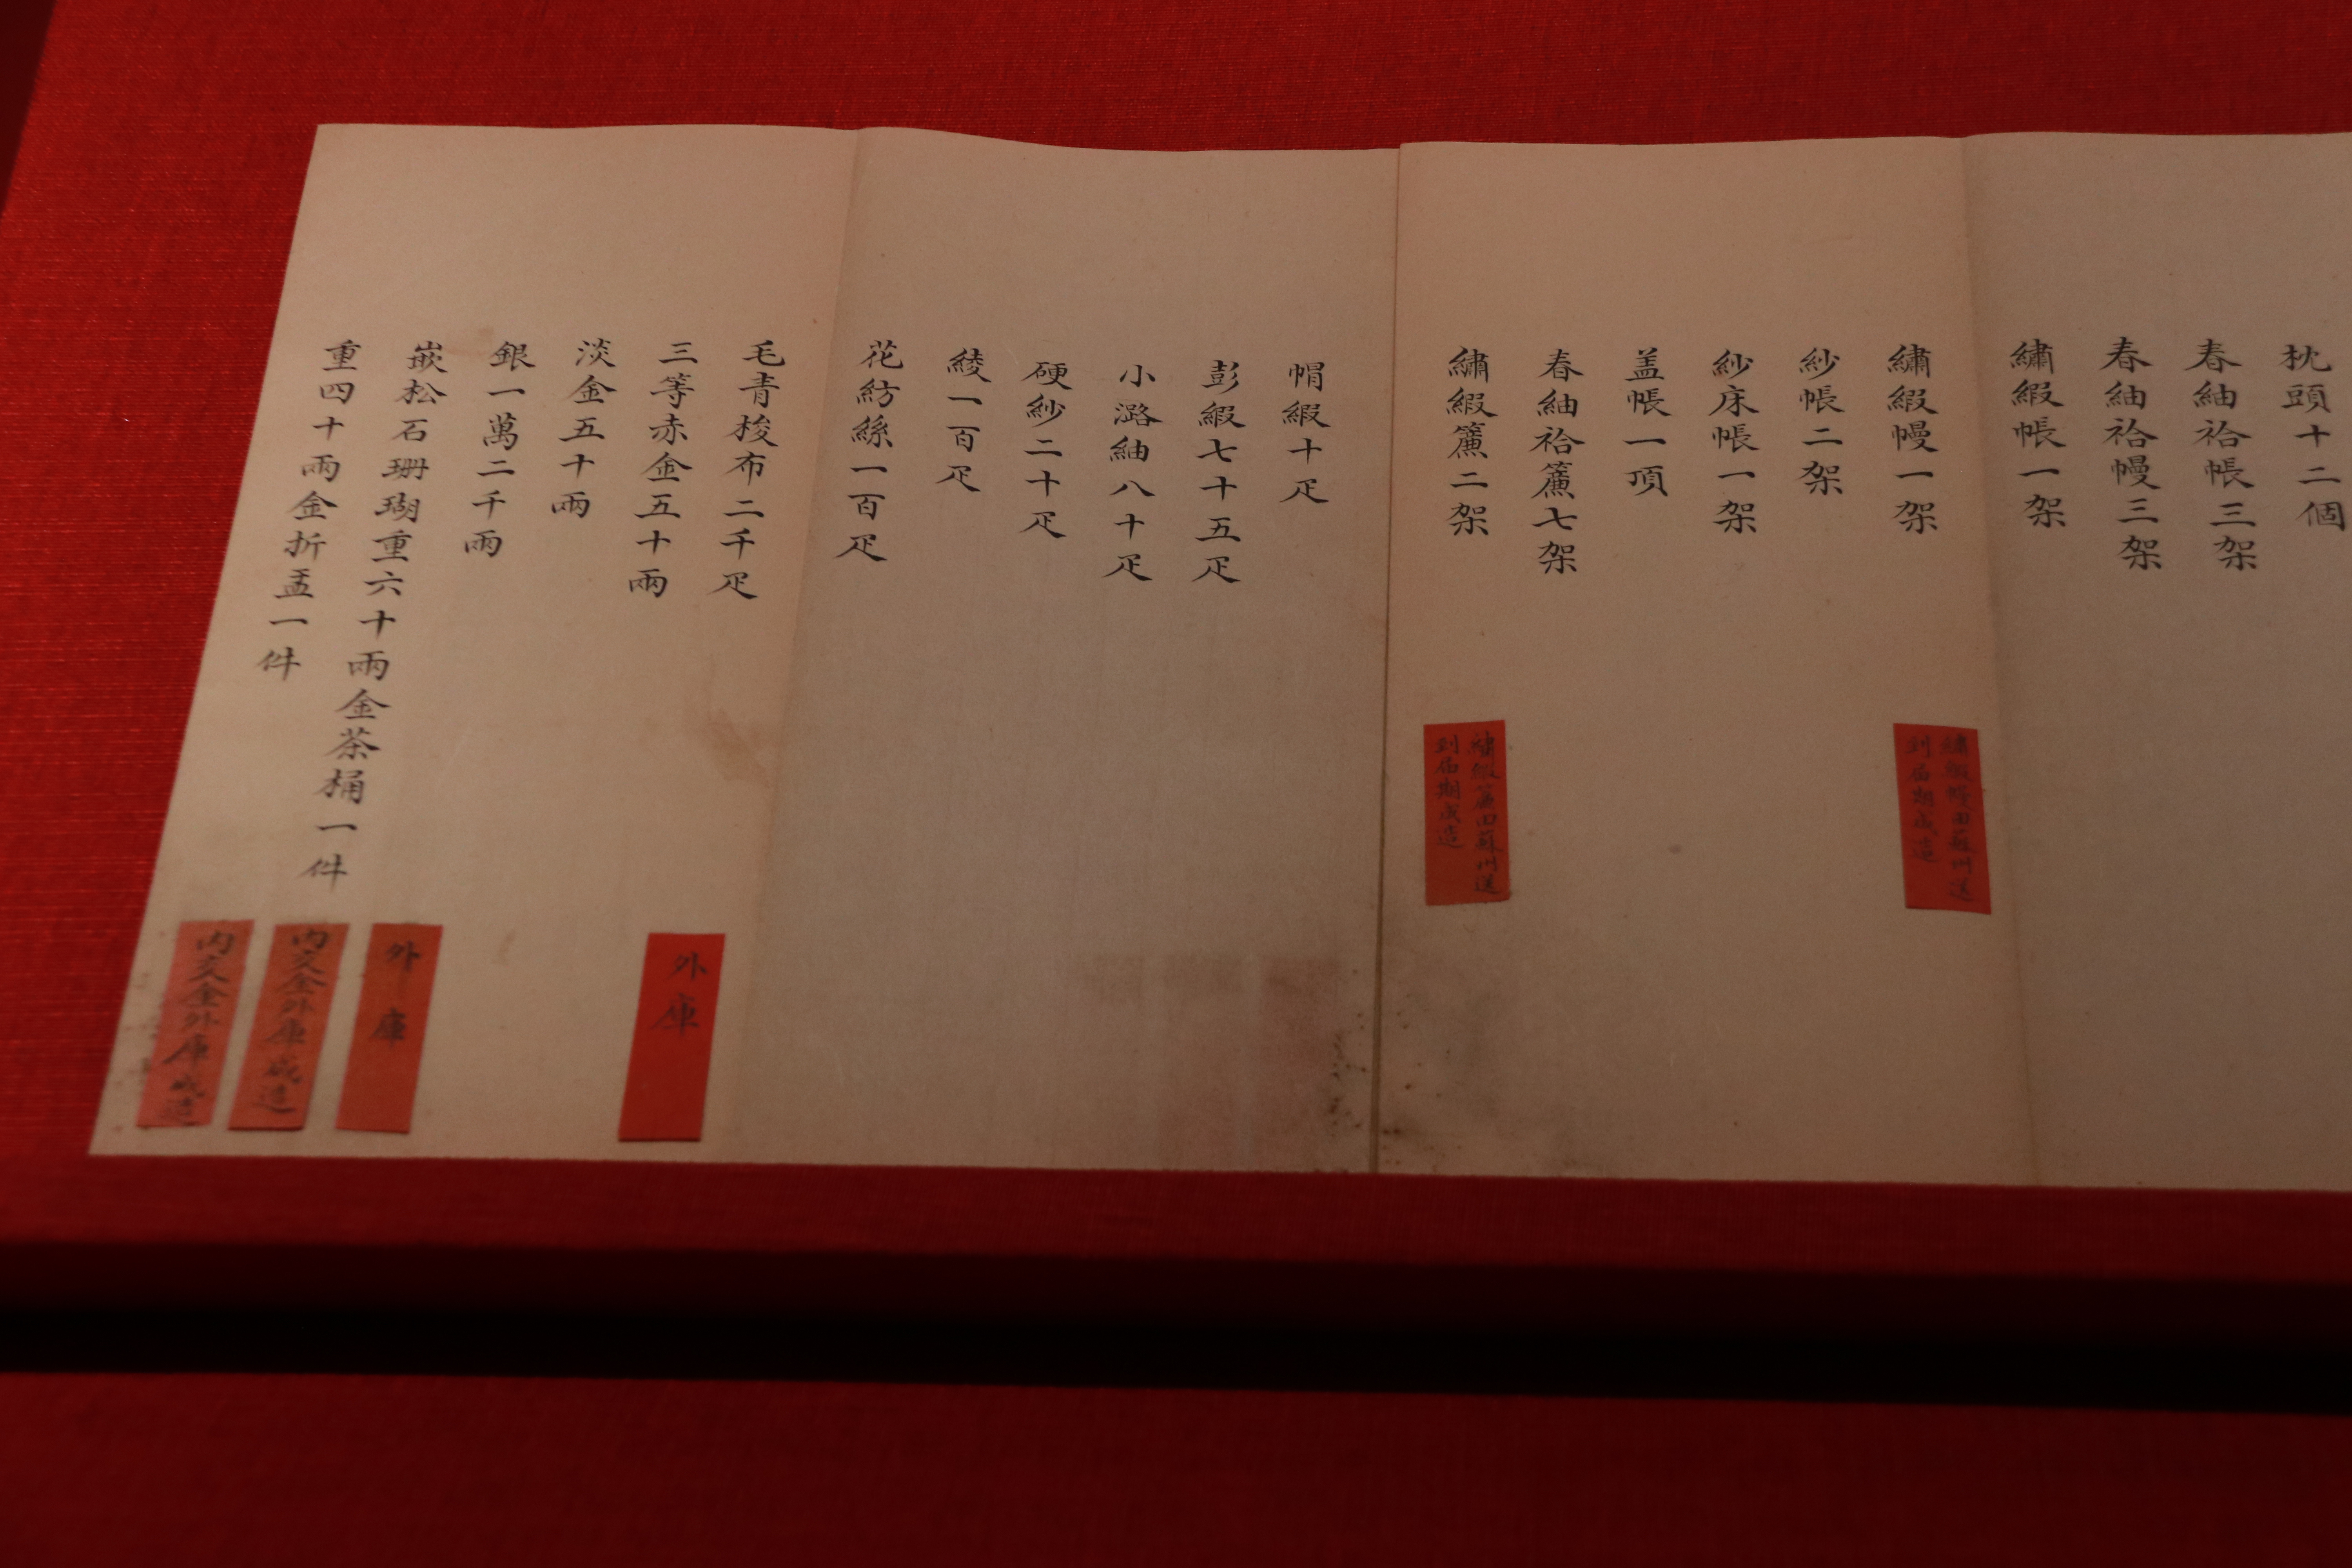 枕頭十二個
春紬袷帳三架
春紬袷幔三架
繡緞帳一架
繡緞幔一架
繡緞幔由蘇州送
到屆期成造
紗帳二架
紗床帳一架
盖帳一項
春紬袷簾七架
繡緞簾二架
繡緞簾由蘇州送
到屆期成造
帽緞十疋
彭緞七十五疋
小潞紬八十疋
硬紗二十疋
綾一百疋
花紡絲一百疋
毛青梭布二千疋
三等赤金五十兩
外庫
淡金五十兩
銀一萬二千兩
外庫
嵌松石珊瑚重六十兩金茶桶一件
內交金外庫成造
重四十兩金折盂一件
內交金外庫成造